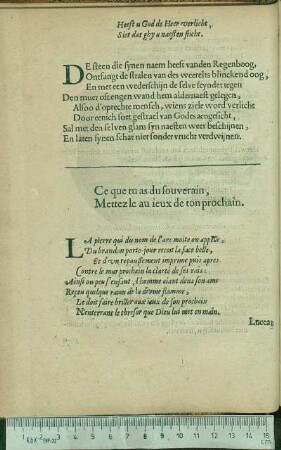 Heeft u God de Heer verlicht,
Siet dat ghy u naesten sticht.
DE steen die synen naem heeft vanden Regenboog,
Ontfangt de stralen van des weerelts blinckend oog,
En met een wederschijn de selve seyndet tegen
Den muer oft eenigen wand hem aldernaest gelegen,
Alsoo d'oprechte mensch, wiens ziele word verlicht
Door eenich soet gestrael van Godes aengesicht,
Sal met den selven glans syn naesten weer beschijnen,
En laten synen schat niet sonder vrucht verdwijnen.
Ce que tu as du souverain,
Mettez le au ieux de ton prochain.
LA pierre qui du nom de l'arc est on appelle,
Du brandon porte-jour recoit la face belle,
Et d'un repaussement imprime puis apres
Contre le mur prochain la clarté de ses rais:
Ainsi on peu s'enfant, l'homme aiant deus son ame
Repeu quelque raion de la divine flamme,
Le doit faire briller aux ieux de son prochain
N'enterrant le thresor que Dieu lui met en main.
1 2 3 4 5 6 7 8 9 10 11 12 13 14 15